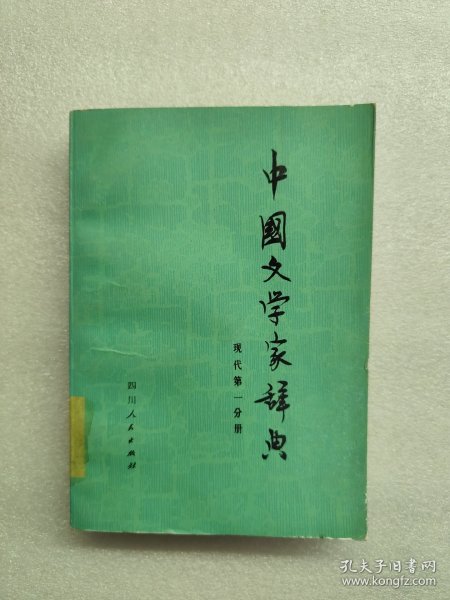 中國文学家辞典
现代第一分册
四川人民出版社
孔夫子旧书网
www.kongfz.com